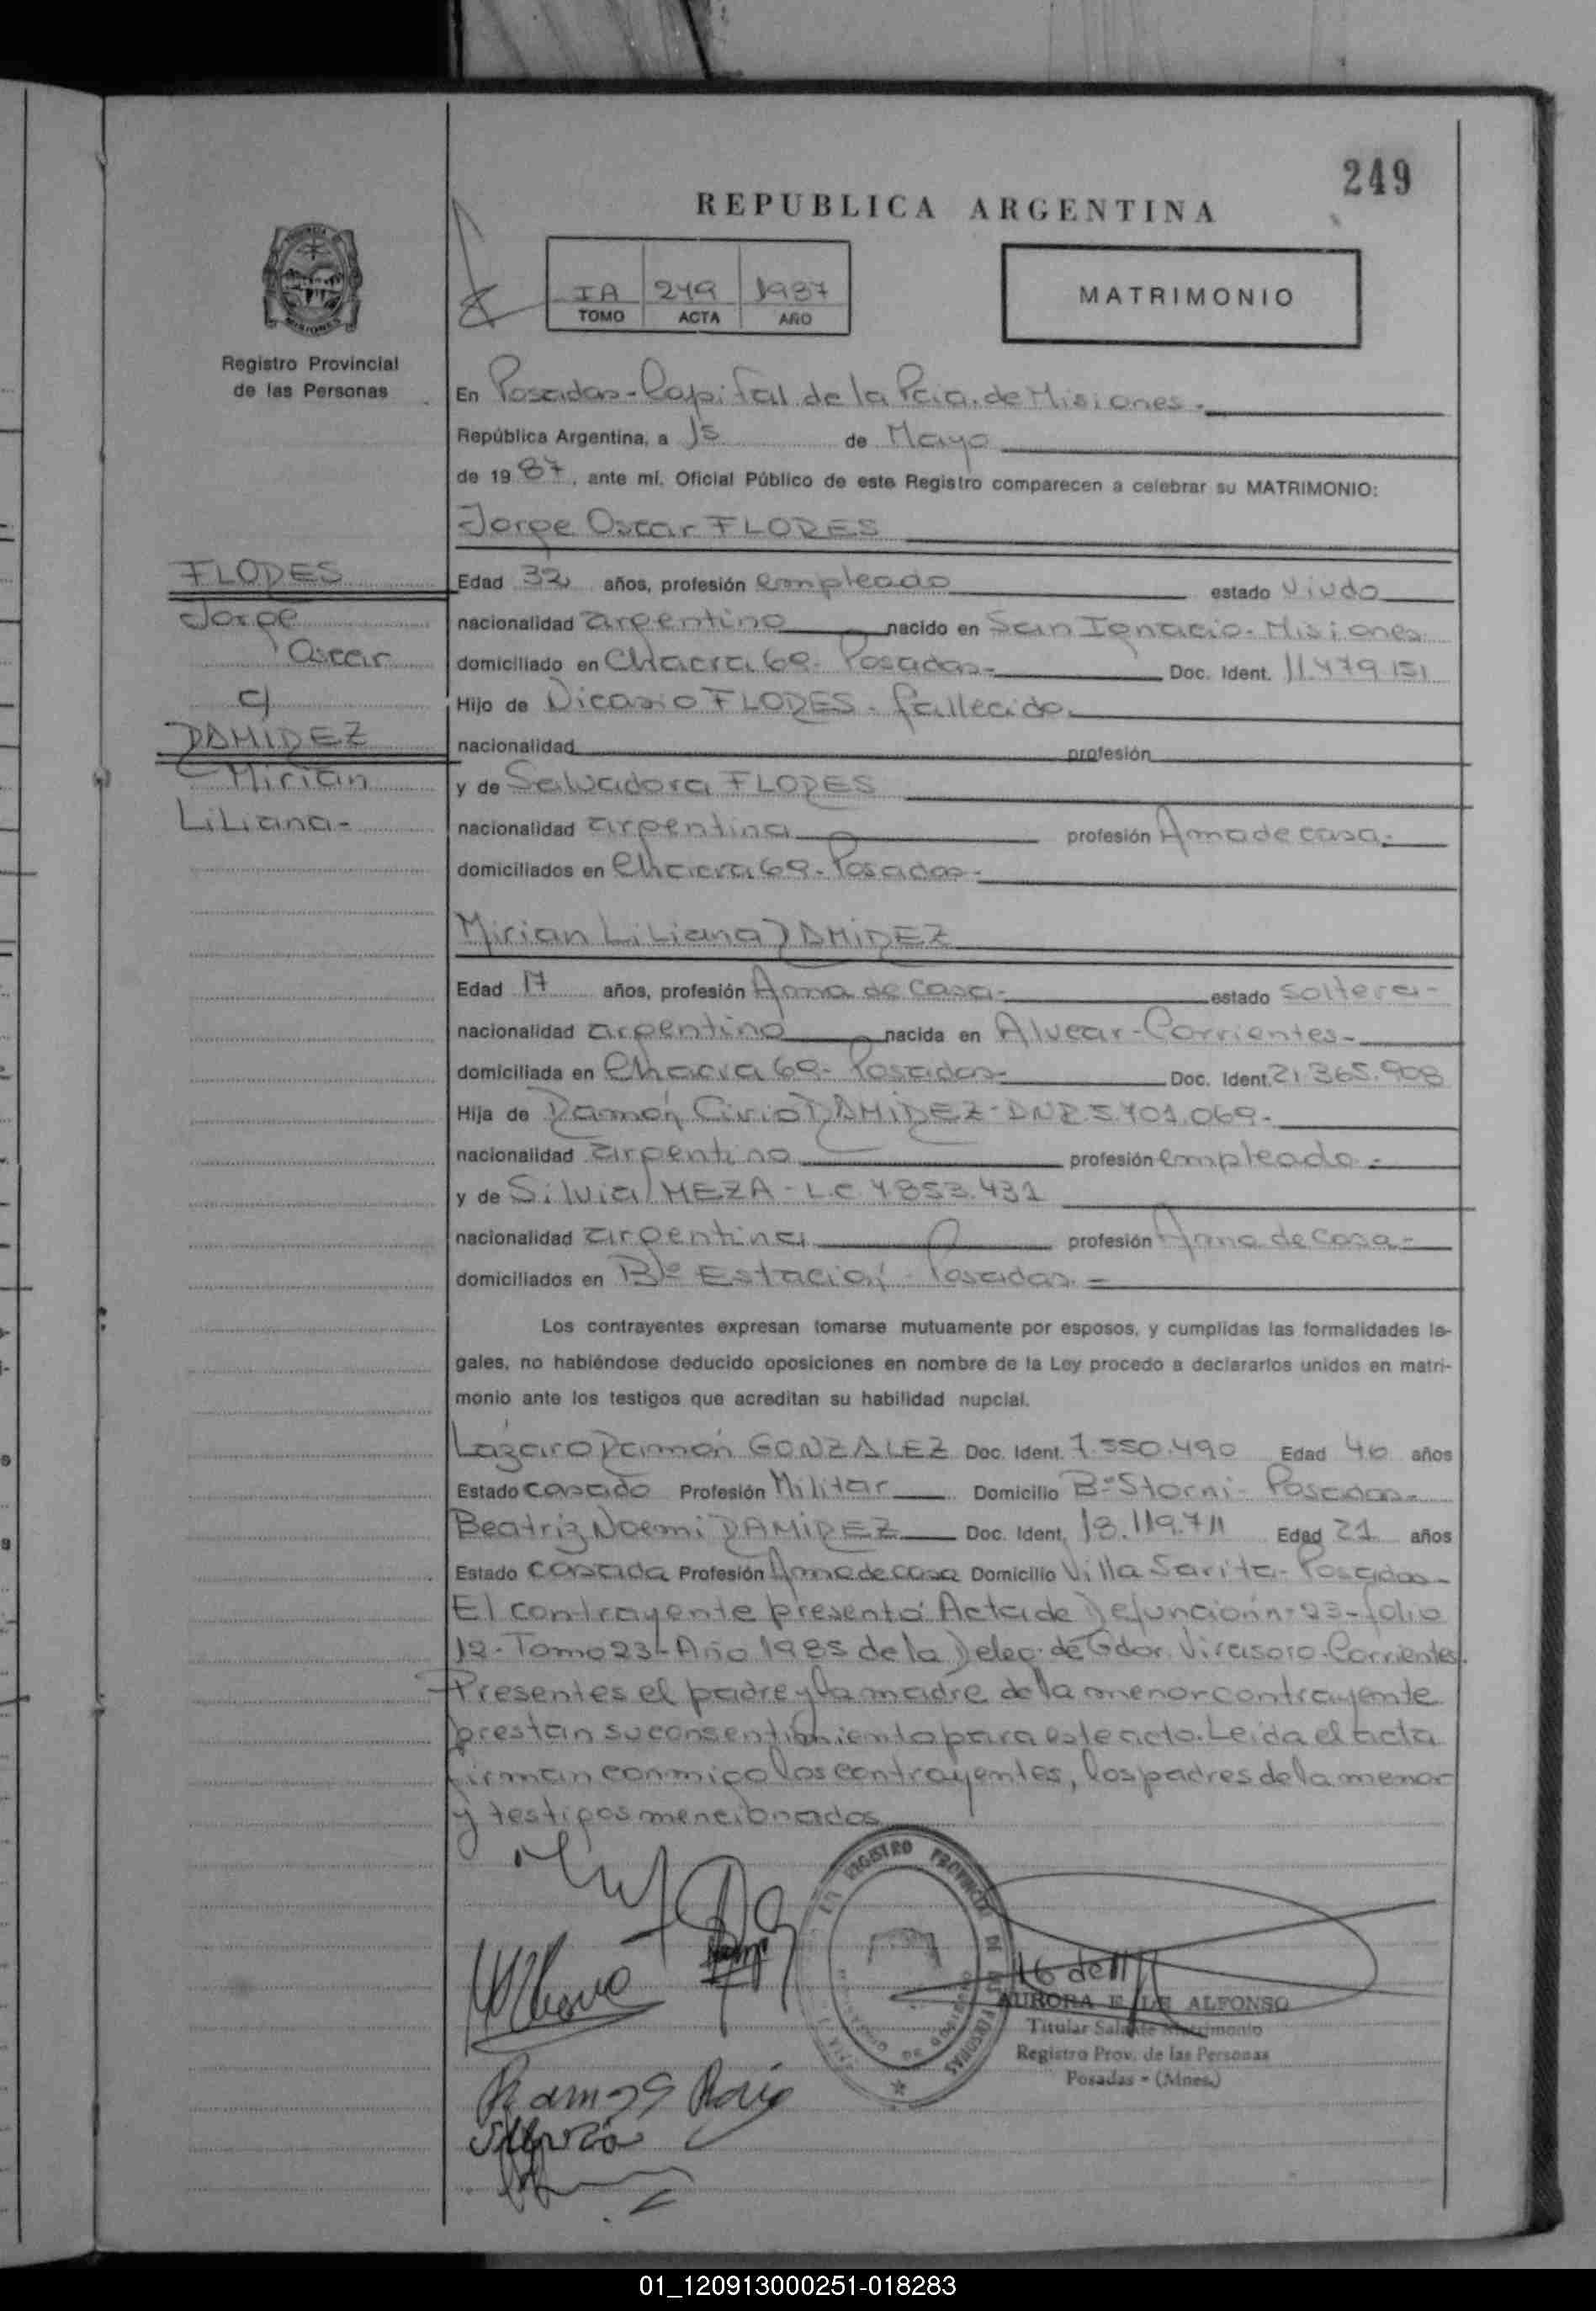 249
REPUBLICA ARGENTINA
IA 249 1987
TOMO ACTA AÑO
MATRIMONIO
Registro Provincial
de las Personas
En Posadas-Capital de la Pcia. de Misiones.
República Argentina, a 15 de Mayo
de 1987, ante mi, Oficial Público de este Registro comparecen a celebrar su MATRIMONIO:
Jorge Oscar FLORES
FLORES
Jorge
Oscar
c/
RAMIREZ
Mirian
Liliana-
Edad 32 años, profesión empleado estado Viudo
nacionalidad argentino nacido en San Ignacio-Misiones
domiciliado en Chacra 69-Posadas- Doc. Ident. 11.479.151
Hijo de Nicasio FLORES-fallecido.
nacionalidad profesión
y de Salvadora FLORES
nacionalidad argentina profesión Ama de casa.
domiciliados en Chacra 69-Posadas-
Mirian Liliana RAMIREZ
Edad 17 años, profesión Ama de casa- estado soltera-
nacionalidad argentina nacida en Alvear-Corrientes-
domiciliada en Chacra 69-Posadas- Doc. Ident. 21.365.908
Hija de Ramón RAMIREZ- 5.701.069-
nacionalidad argentino profesión empleado-
y de Silvia MEZA-L.C 4.853.431
nacionalidad argentina profesión Ama de casa-
domiciliados en Bº Estación-Posadas.=
Los contrayentes expresan tomarse mutuamente por esposos, y cumplidas las formalidades le-
gales, no habiéndose deducido oposiciones en nombre de la Ley procedo a declararlos unidos en matri-
monio ante los testigos que acreditan su habilidad nupcial.
Lázaro Ramón GONZALEZ Doc. Ident. 7.550.490 Edad 40 años
Estado casado Profesión Militar Domicilio Bº Storni-Posadas-
Beatriz Noemi RAMIREZ Doc. Ident. 18.119.711 Edad 21 años
Estado casada Profesión Ama de casa Domicilio Villa Sarita-Posadas-
El contrayente presentó Acta de Defunción nº 23-folio
12-Tomo 23-Año 1985 de la Deleg. de Gdor. Virasoro-Corrientes.
Presentes el padre y la madre de la menor contrayente
prestan su consentimiento para este acto. Leída el acta
firman conmigo los contrayentes, los padres de la menor
y testigos mencionados
REGISTRO PROVINCIAL DE LAS PERSONAS
16 de 11
AURORA E. DE ALFONSO
Titular Sala de Matrimonio
Registro Prov. de las Personas
Posadas - (Mnes.)
01_120913000251-018283